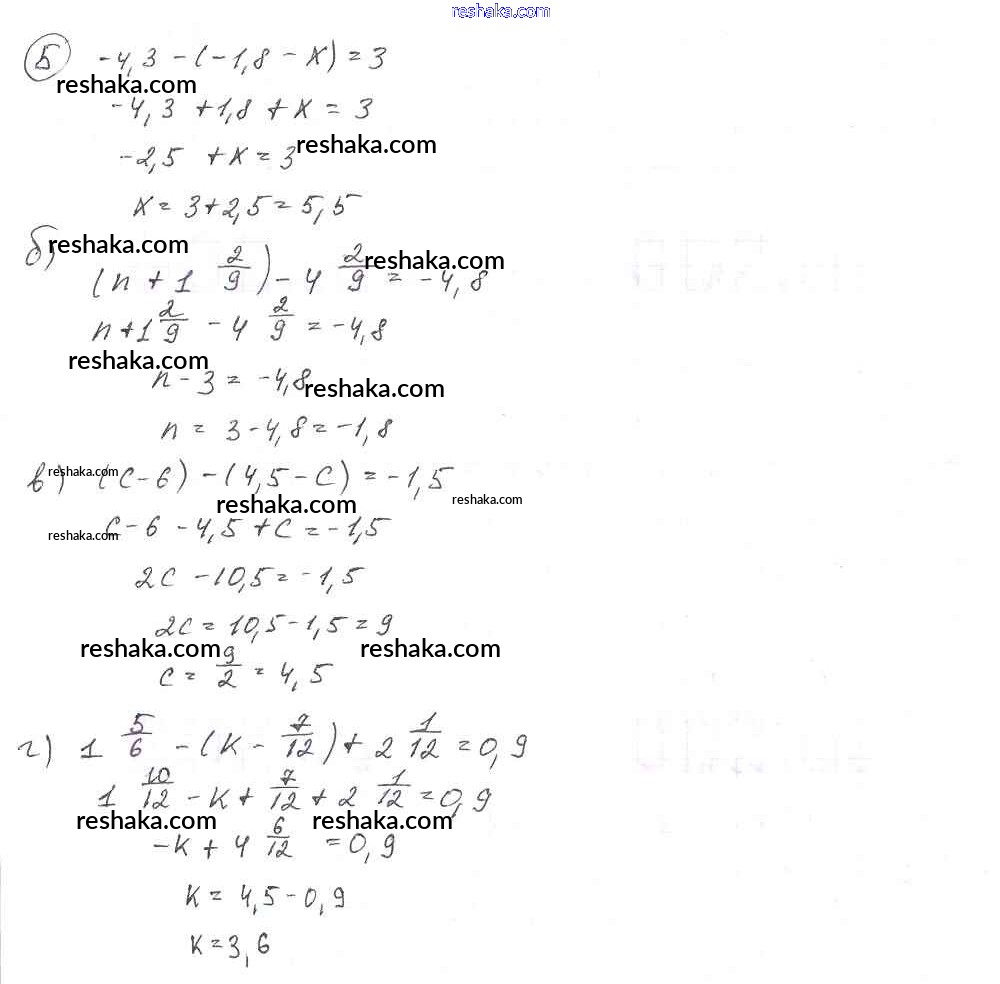 reshaka.com
5 -4,3 - (-1,8 - x) = 3
reshaka.com
-4,3 + 1,8 + x = 3
reshaka.com
-2,5 + x = 3
x = 3 + 2,5 = 5,5
reshaka.com
reshaka.com
б) (n + 1 2/9) - 4 2/9 = -4,8
n + 1 2/9 - 4 2/9 = -4,8
reshaka.com
n - 3 = -4,8
reshaka.com
n = 3 - 4,8 = -1,8
reshaka.com
в) (c - 6) - (4,5 - c) = -1,5
reshaka.com
reshaka.com
c - 6 - 4,5 + c = -1,5
reshaka.com
2c - 10,5 = -1,5
2c = 10,5 - 1,5 = 9
reshaka.com
reshaka.com
c = 9/2 = 4,5
г) 1 5/6 - (k - 7/12) + 2 1/12 = 0,9
1 10/12 - k + 7/12 + 2 1/12 = 0,9
reshaka.com
reshaka.com
-k + 4 6/12 = 0,9
k = 4,5 - 0,9
k = 3,6